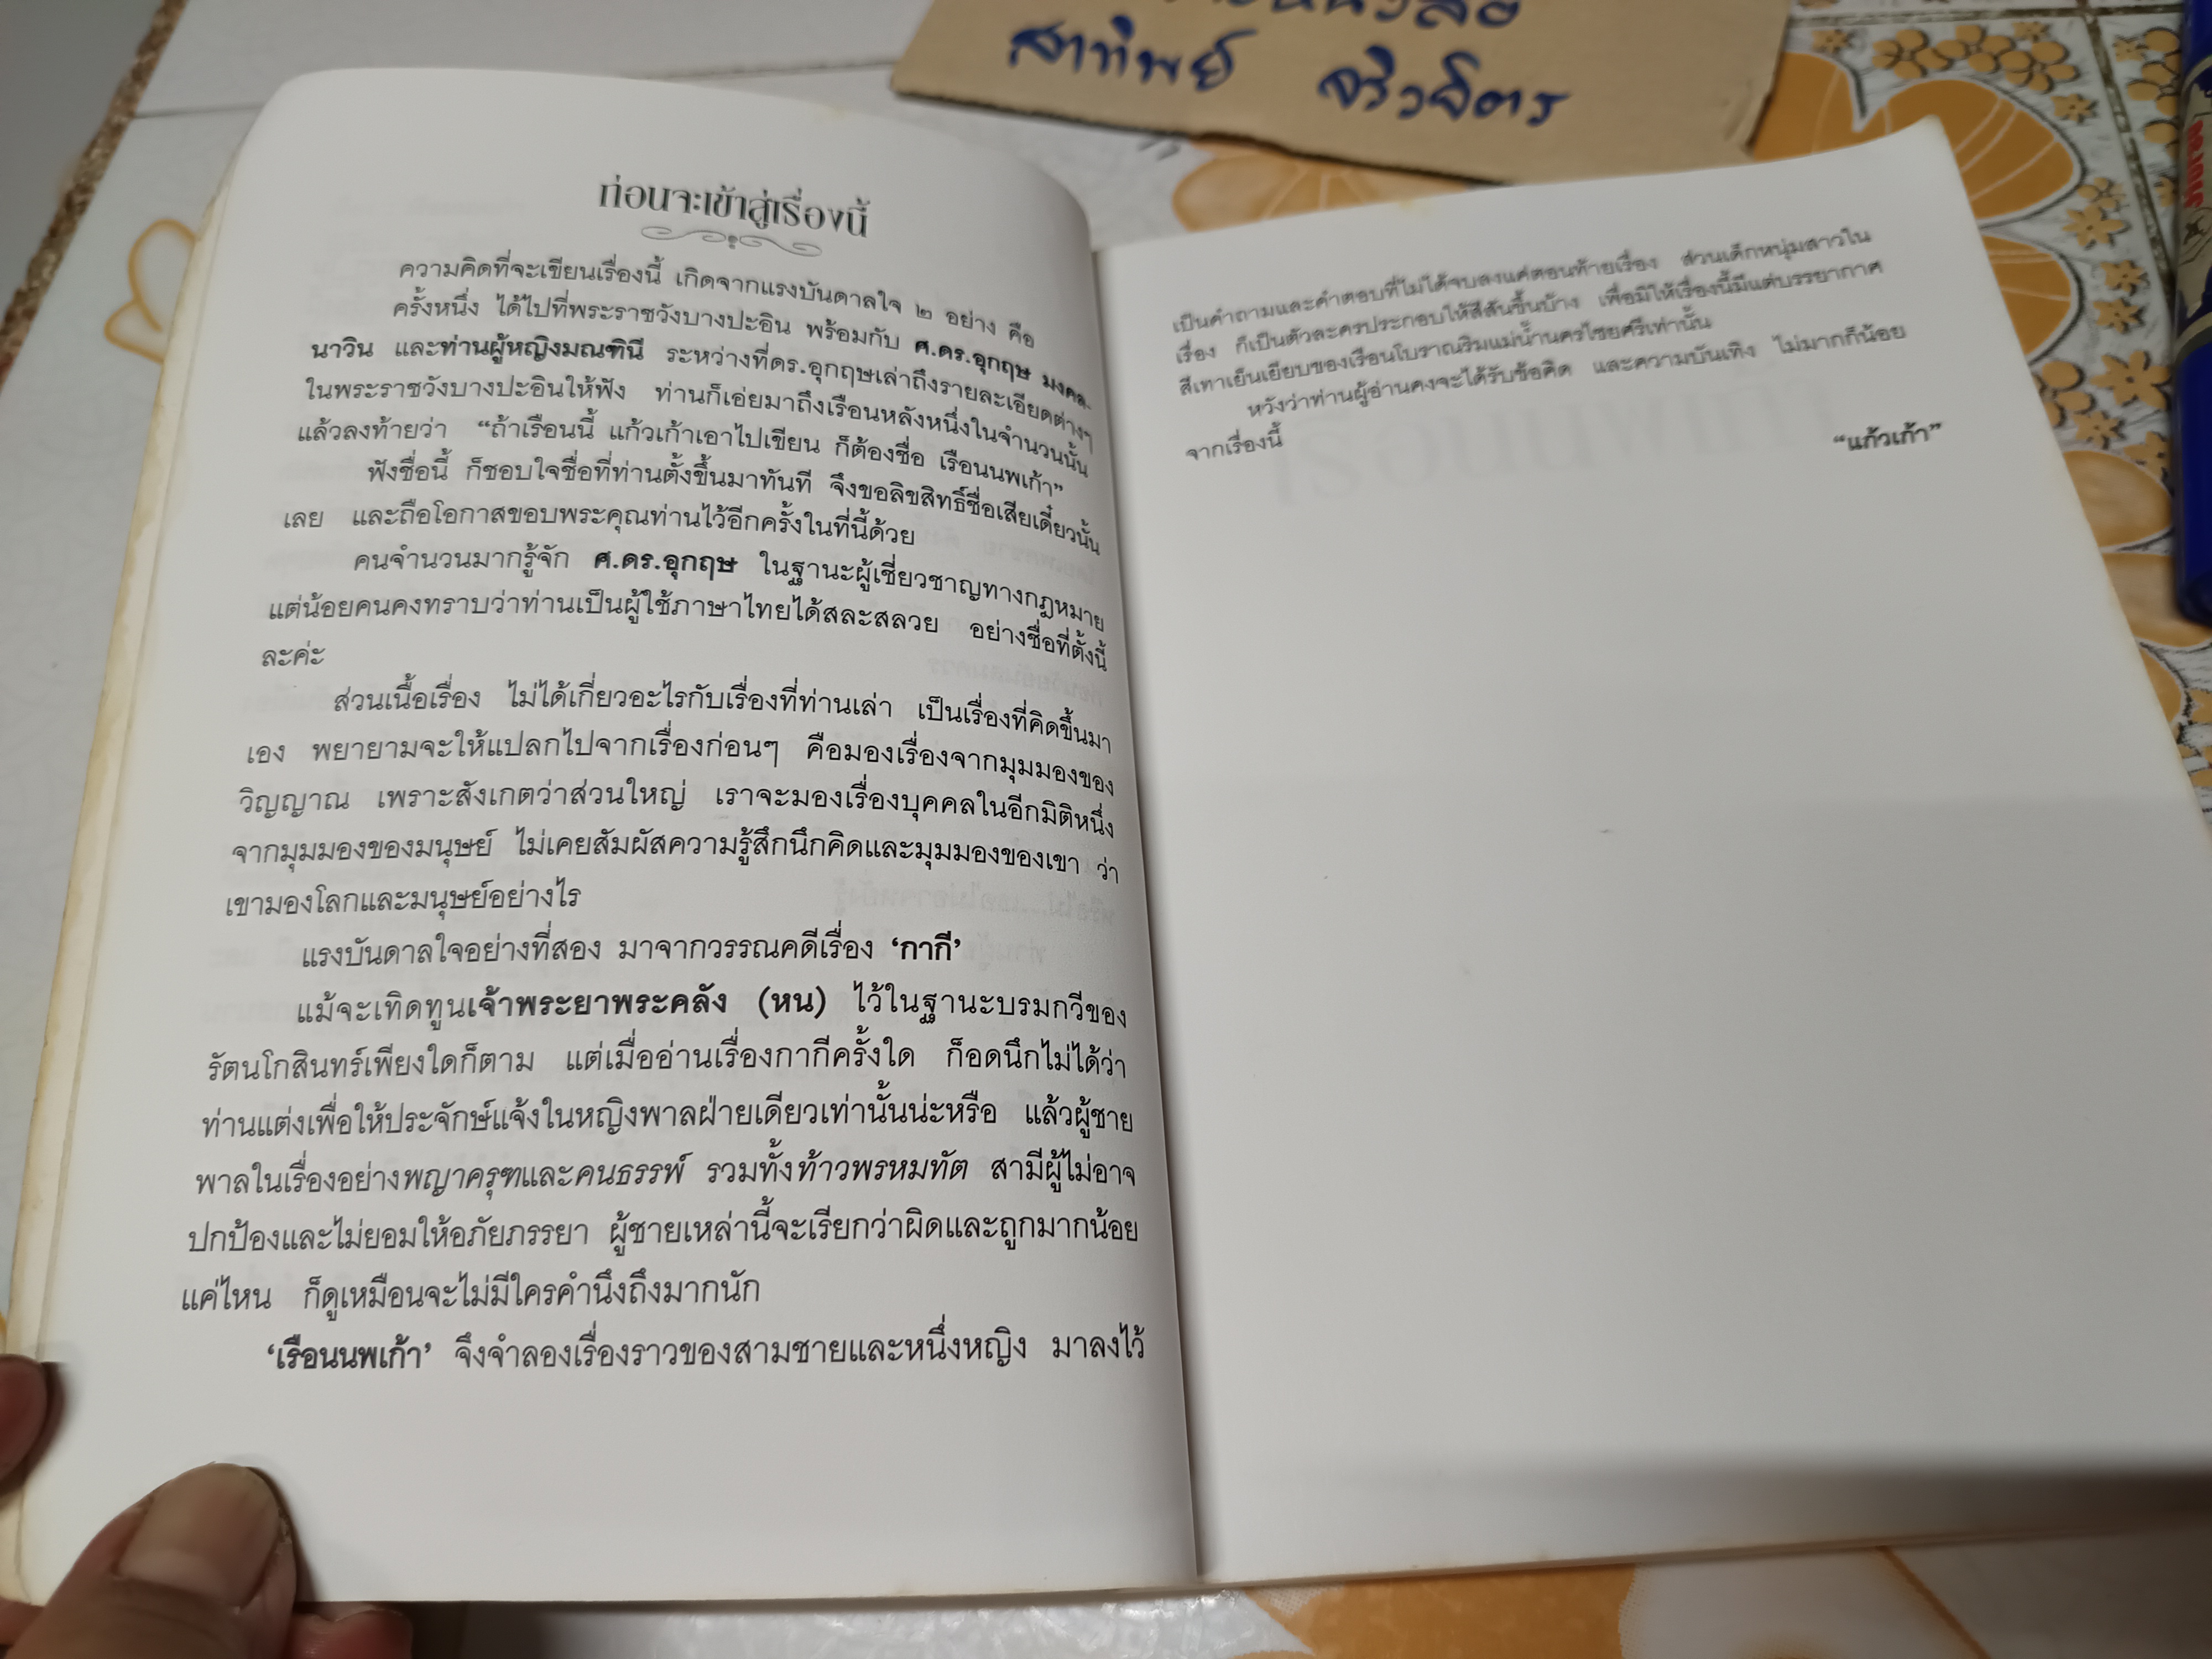 สาทิพย์ จริวจิตร
ก่อนจะเข้าสู่เรื่องนี้
ความคิดที่จะเขียนเรื่องนี้ เกิดจากแรงบันดาลใจ ๒ อย่าง คือ
ครั้งหนึ่ง ได้ไปที่พระราชวังบางปะอิน พร้อมกับ ศ.ดร.อุกฤษ มงคล-
นาวิน และท่านผู้หญิงมณฑินี ระหว่างที่ดร.อุกฤษเล่าถึงรายละเอียดต่างๆ
ในพระราชวังบางปะอินให้ฟัง ท่านก็เอ่ยมาถึงเรือนหลังหนึ่งในจำนวนนั้น
แล้วลงท้ายว่า “ถ้าเรือนนี้ แก้วเก้าเอาไปเขียน ก็ต้องชื่อ เรือนนพเก้า”
ฟังชื่อนี้ ก็ชอบใจชื่อที่ท่านตั้งขึ้นมาทันที จึงขอลิขสิทธิ์ชื่อเสียเดี๋ยวนั้น
เลย และถือโอกาสขอบพระคุณท่านไว้อีกครั้งในที่นี้ด้วย
คนจำนวนมากรู้จัก ศ.ดร.อุกฤษ ในฐานะผู้เชี่ยวชาญทางกฎหมาย
แต่น้อยคนคงทราบว่าท่านเป็นผู้ใช้ภาษาไทยได้สละสลวย อย่างชื่อที่ตั้งนี้
ละค่ะ
ส่วนเนื้อเรื่อง ไม่ได้เกี่ยวอะไรกับเรื่องที่ท่านเล่า เป็นเรื่องที่คิดขึ้นมา
เอง พยายามจะให้แปลกไปจากเรื่องก่อนๆ คือมองเรื่องจากมุมมองของ
วิญญาณ เพราะสังเกตว่าส่วนใหญ่ เราจะมองเรื่องบุคคลในอีกมิติหนึ่ง
จากมุมมองของมนุษย์ ไม่เคยสัมผัสความรู้สึกนึกคิดและมุมมองของเขา ว่า
เขามองโลกและมนุษย์อย่างไร
แรงบันดาลใจอย่างที่สอง มาจากวรรณคดีเรื่อง ‘กากี’
แม้จะเทิดทูนเจ้าพระยาพระคลัง (หน) ไว้ในฐานะบรมกวีของ
รัตนโกสินทร์เพียงใดก็ตาม แต่เมื่ออ่านเรื่องกากีครั้งใด ก็อดนึกไม่ได้ว่า
ท่านแต่งเพื่อให้ประจักษ์แจ้งในหญิงพาลฝ่ายเดียวเท่านั้นน่ะหรือ แล้วผู้ชาย
พาลในเรื่องอย่างพญาครุฑและคนธรรพ์ รวมทั้งท้าวพรหมทัต สามีผู้ไม่อาจ
ปกป้องและไม่ยอมให้อภัยภรรยา ผู้ชายเหล่านี้จะเรียกว่าผิดและถูกมากน้อย
แค่ไหน ก็ดูเหมือนจะไม่มีใครคำนึงถึงมากนัก
‘เรือนนพเก้า’ จึงจำลองเรื่องราวของสามชายและหนึ่งหญิง มาลงไว้
เป็นคำถามและคำตอบที่ไม่ได้จบลงแค่ตอนท้ายเรื่อง ส่วนเด็กหนุ่มสาวใน
เรื่อง ก็เป็นตัวละครประกอบให้สีสันขึ้นบ้าง เพื่อมิให้เรื่องนี้มีแต่บรรยากาศ
สีเทาเย็นเยียบของเรือนโบราณริมแม่น้ำนครไชยศรีเท่านั้น
หวังว่าท่านผู้อ่านคงจะได้รับข้อคิด และความบันเทิง ไม่มากก็น้อย
จากเรื่องนี้
“แก้วเก้า”